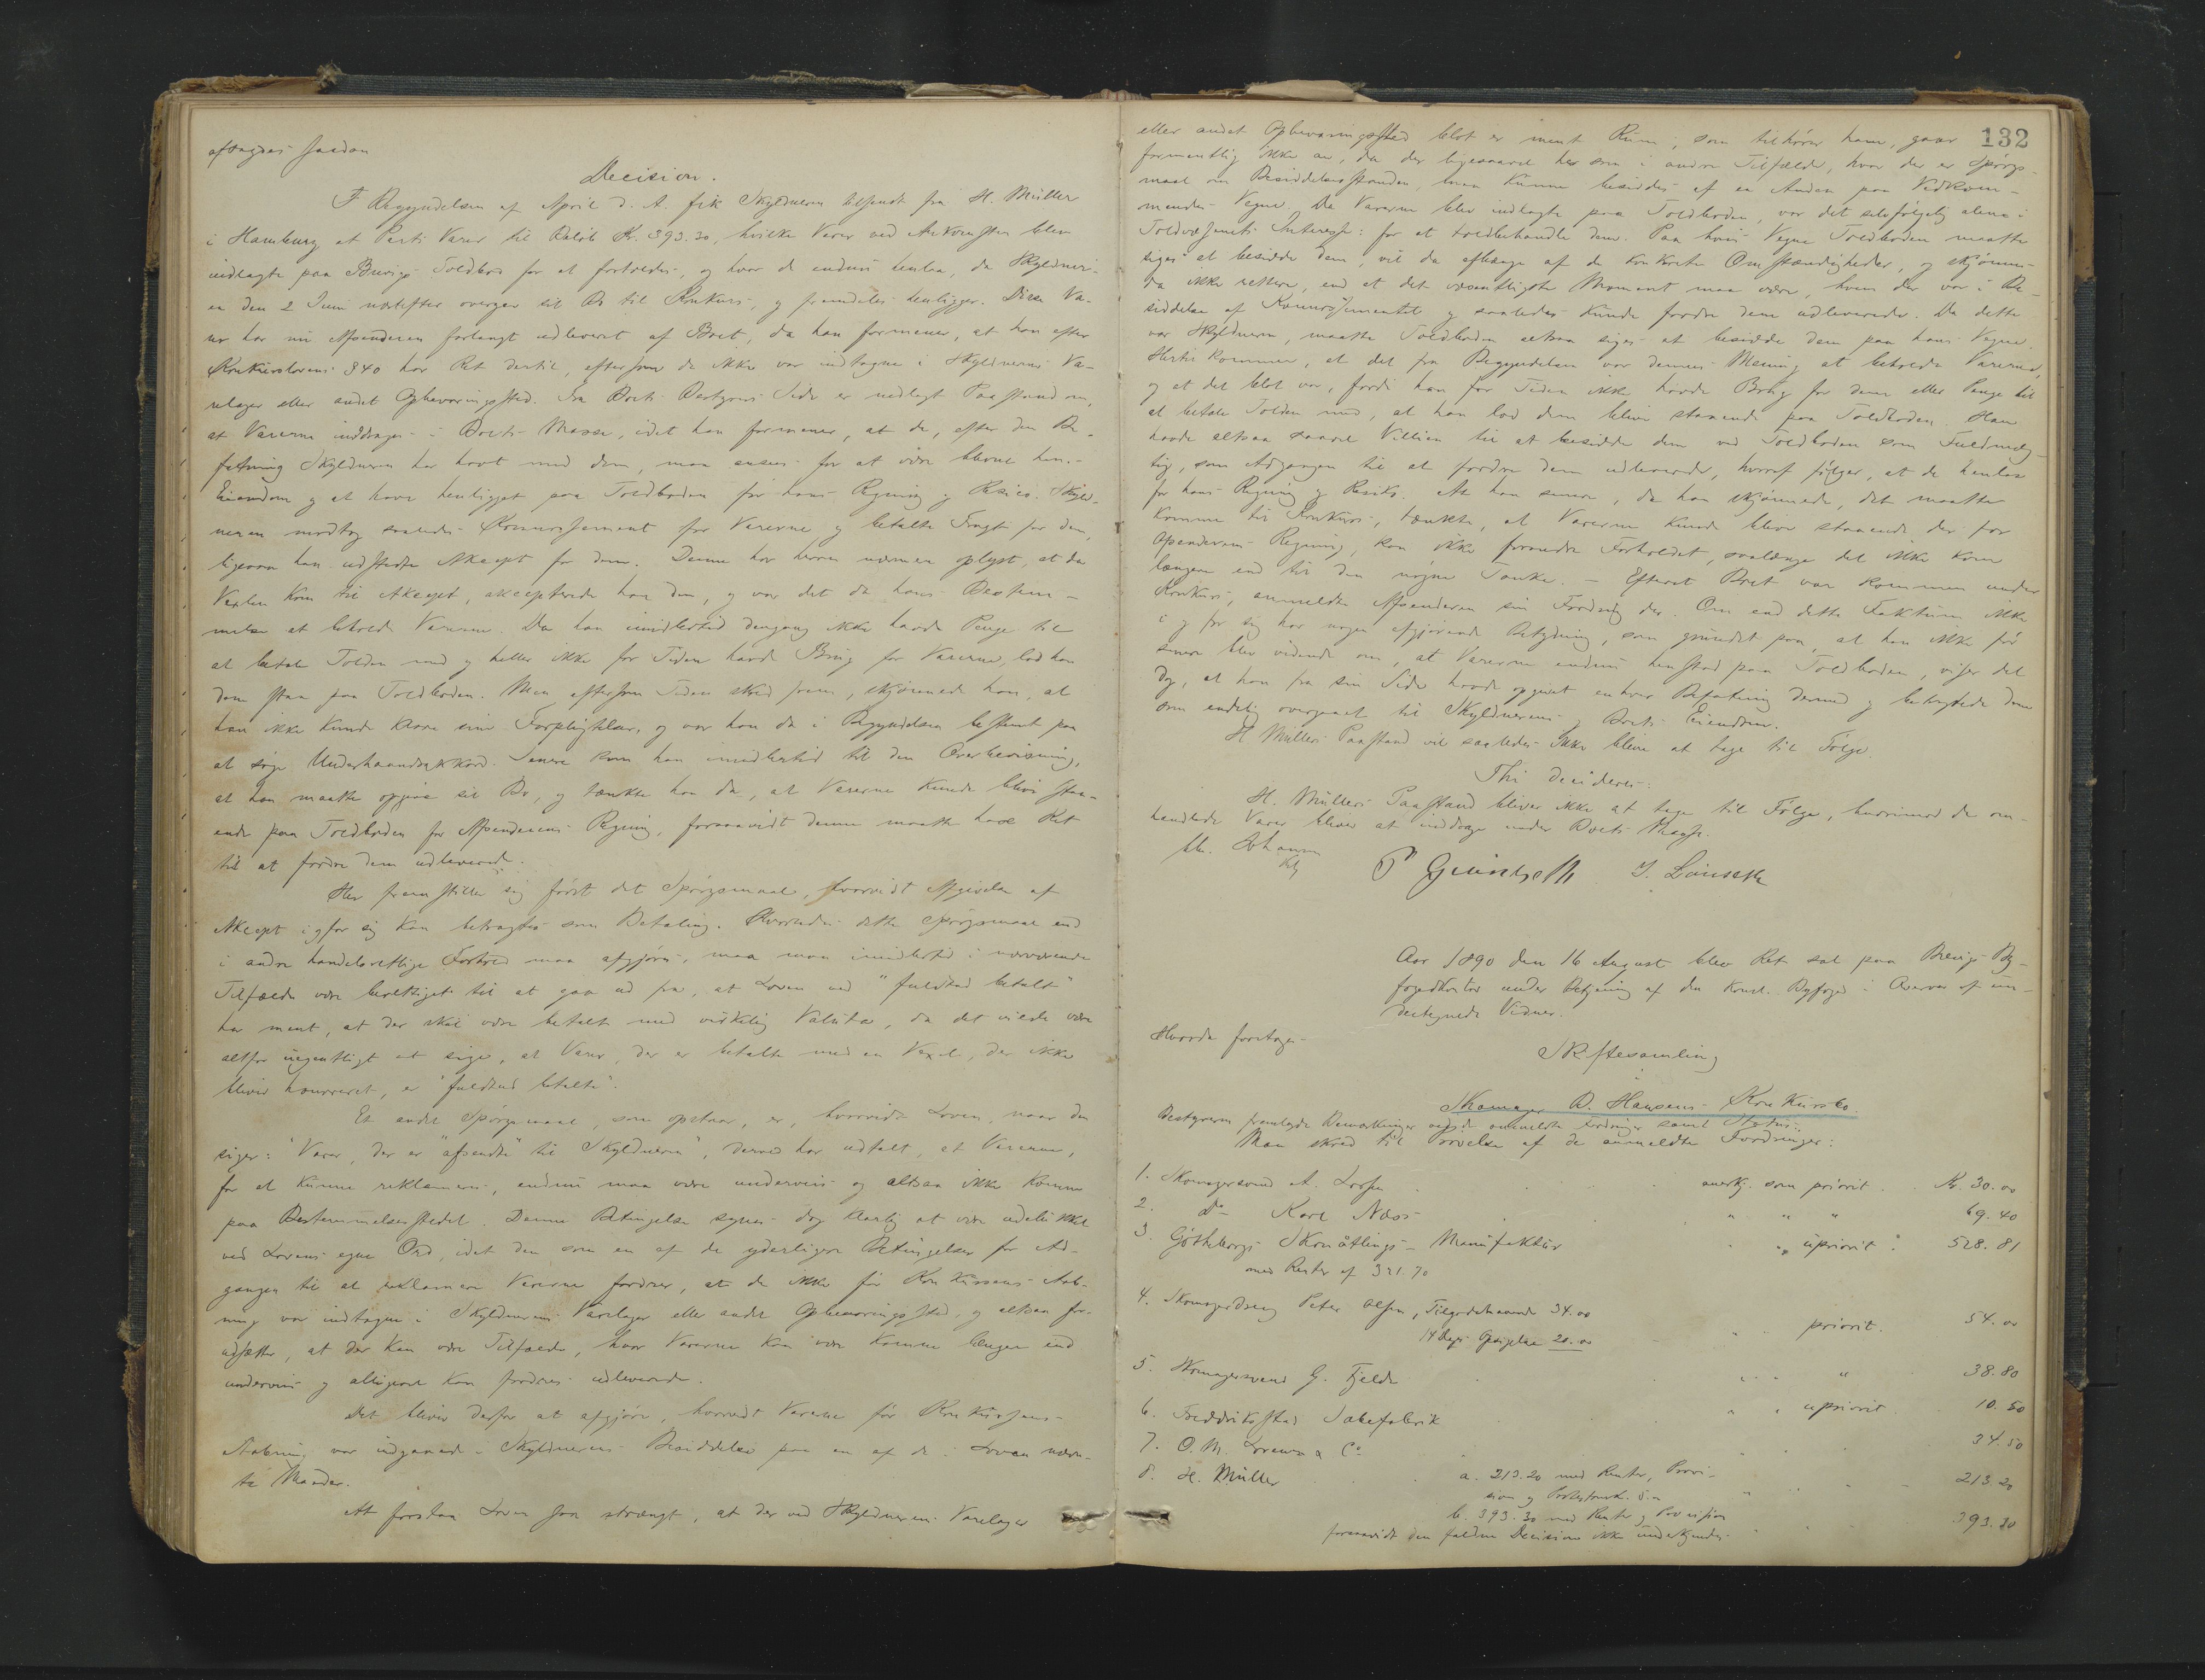 afsagdes saadan
Decision.
I Begyndelsen af April d. A. fik Skyldneren tilsendt fra H. Müller
i Hamburg et Parti Varer til Beløb Kr. 393.30, hvilke Varer ved Ankomsten blev
indlagte paa Brevigs Toldbod for at fortoldes, og hvor de endnu henlaa, da Skyldner-
en den 2 Juni næstefter overgav sit Bo til Konkurs, og fremdeles henligger. Disse Va-
rer har nu Afsenderen forlangt udleveret af Boet, da han formener, at han efter
Konkurslovens §40 har Ret dertil, eftersom de ikke var indtagne i Skyldnerens Va-
relager eller andet Opbevaringssted. Fra Boets Bestyrers Side er nedlagt Paastand om,
at Varerne inddrages i Boets Masse, idet han formener, at de, efter den Be-
fatning Skyldneren har havt med dem, maa ansees for at være blevne hans
Eiendom og at have henligget paa Toldboden for hans Regning og Risico. Skyld-
neren modtog saaledes Konnossement for Varerne og betalte Fragt for dem,
ligesom han udstedte Akcept for dem. Denne har herom nærmere oplyst, at da
Vexlen kom til Akcept, akcepterede han den, og var det da hans Bestem-
melse at beholde Varerne. Da han imidlertid dengang ikke havde Penge til
at betale Tolden med og heller ikke for Tiden havde Brug for Varerne, lod han
dem staa paa Toldboden. Men eftersom Tiden skred frem, skjønnede han, at
han ikke kunde klare sine Forpligtelser, og var han da i Begyndelsen bestemt paa
at søge Underhaandsakkord. Senere kom han imidlertid til den Overbevisning,
at han maatte opgive sit Bo, og tænkte han da, at Varerne kunde blive staa-
ende paa Toldboden for Afsenderens Regning, forsaavidt denne maatte have Ret
til at fordre dem udleverede.
Her fremstiller sig først det Spørgsmaal, hvorvidt Afgivelse af
Akcept i og for sig kan betragtes som Betaling. Hvorledes dette Spørgsmaal end
i andre handelsretlige Forhold maa afgjøres, maa man imidlertid i nærværende
Tilfælde være berettiget til at gaa ud fra, at Loven ved "fuldtud betalt"
har ment, at der skal være betalt med virkelig Valuta, da det vilde være
altfor uegentligt at sige, at Varer, der er betalte med en Vexel, der ikke
bliver honoreret, er "fuldtud betalte".
Et andet Spørgsmaal, som opstaar, er, hvorvidt Loven, naar den
siger: "Varer, der er "afsendte" til Skyldneren", derved har udtalt, at Varerne,
for at kunne reklameres, endnu maa være underveis og altsaa ikke komne
paa Bestemmelsesstedet. Denne Betingelse synes dog klarlig at være udelukket
ved Lovens egne Ord, idet den som en af de yderligere Betingelser for Ad-
gangen til at reklamere Varerne fordrer, at de ikke før Konkursens Aab-
ning var indtagne i Skyldnerens Varelager eller andet Opbevaringssted, og altsaa for-
udsætter, at der kan være Tilfælde, hvor Varerne kan være komne længer end
underveis og alligevel kan fordres udleverede.
Det bliver derfor at afgjøre, hvorvidt Varerne før Konkursens
Aabning var indgaaede i Skyldnerens Besiddelse paa en af de i Loven nævn-
te Maader.
At forstaa Loven saa strængt, at der ved Skyldnerens Varelager
132
eller andet Opbevaringssted blot er ment Rum, som tilhører ham, gaar
formentlig ikke an, da der ligesaavel her som i andre Tilfælde, hvor der er Spørgs-
maal om Besiddelsesstanden, maa kunne besiddes af en Anden paa Vedkom-
mendes Vegne. Da Varerne blev indlagte paa Toldboden, var det selvfølgelig alene i
Toldvæsenets Interesse: for at toldbehandle dem. Paa hvis Vegne Toldboden maatte
siges at besidde dem, vil da afhænge af de konkrete Omstændigheder, og skjønnes
da ikke rettere, end at det væsentligste Moment maa være, hvem der var i Be-
siddelse af Konnossementet og saaledes kunde fordre dem udleverede. Da dette
var Skyldneren, maatte Toldboden altsaa siges at besidde dem paa hans Vegne.
Hertil kommer, at det fra Begyndelsen var dennes Mening at beholde Varerne,
og at det blot var, fordi han for Tiden ikke havde Brug for dem eller Penge til
at betale Tolden med, at han lod dem blive staaende paa Toldboden. Han
havde altsaa saavel Villien til at besidde dem ved Toldboden som Fuldmæg-
tig, som Adgangen til at fordre dem udleverede, hvoraf følger, at de henlaa
for hans Regning og Risiko. At han senere, da han skjønnede, det maatte
komme til Konkurs, tænkte, at Varerne kunde blive staaende der for
Afsenderens Regning, kan ikke forandre Forholdet, saalænge det ikke kom
længere end til den nøgne Tanke. – Efterat Boet var kommen under
Konkurs, anmeldte Afsenderen sin Fordring der. Om end dette Faktum ikke
i og for sig har nogen afgjørende Betydning, som grundet paa, at han ikke før
senere blev vidende om, at Varerne endnu henstod paa Toldboden, viser det
dog, at han fra sin Side havde opgivet enhver Befatning dermed og betragtede dem
som endelig overgaaet til Skyldnerens og Boets Eiendom.
H Müllers Paastand vil saaledes ikke blive at tage til Følge.
Thi decideres:
H. Müllers Paastand bliver ikke at tage til Følge, hvorimod de om-
handlede Varer bliver at inddrage under Boets Masse.
P Gunderseth J. Lönseth
Aar 1890 den 16 August blev Ret sat paa Brevigs By-
fogedkontor under Betjening af den konst. Byfoged i Overvær af un-
dertegnede Vidner.
Hvorda foretoges
Skiftesamling
i
Skomager D. Hansens Konkursbo.
Bestyreren fremlagde Bemærkninger vedr de anmeldte Fordringer samt Status.
Man skred til Prøvelse af de anmeldte Fordringer:
1. Skomagersvend A. Larsen anerkj. som priorit. Kr. 30.00
2. Do Karl Næss " " " 69.40
3. Götheborgs Skomåtlings-Manufaktur " " upriorit. 528.81
med Renter af 321.70
4. Skomagerdreng Peter Olsen, Tilgodehavende 34.00
14 Dages Opsigelse 20.00 " " priorit. 54.00
5. Skomagersvend G. Fjelde " " " 38.80
6. Fredrikstad Sæbefabrik " " upriorit. 10.50
7. O. M. Lorents & Co " " 34.50
8. H. Müller a. 213.20 med Renter, Provi-
sion og Protestomk. " " 213.20
b. 393.30 med Renter og Provision
forsaavidt den faldne Decision ikke underkjendes " " 393.30